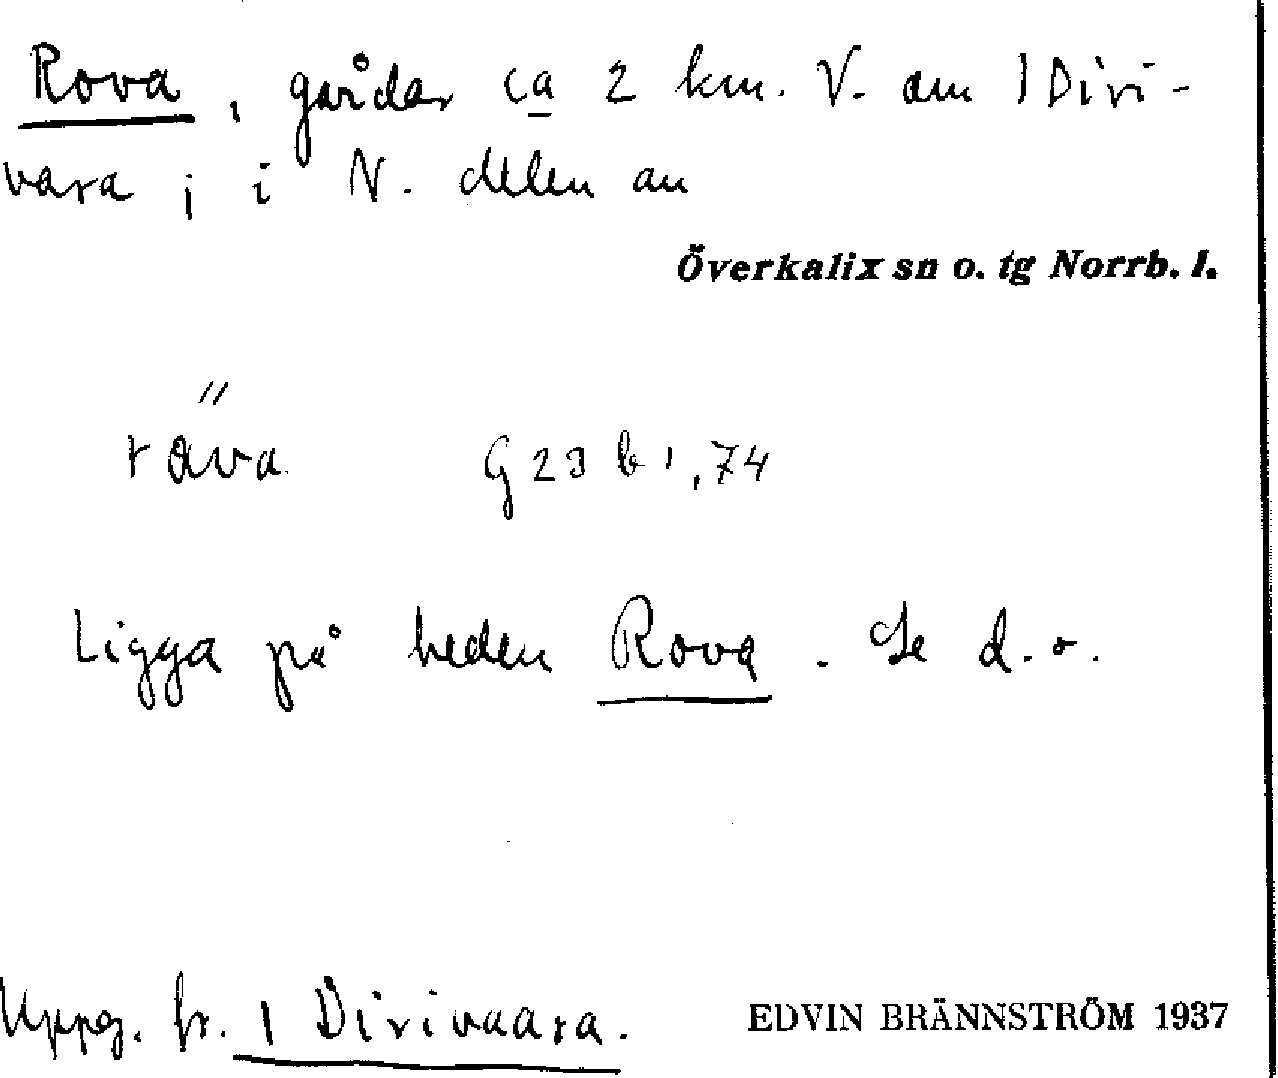 Rova, gårdar ca 2 km. V. om 1 Divi-
vara i i N. delen av
Överkalix sn o. tg Norrb. l.
råva G 23 b 1, 74
Ligga på heden Rova. Se d. o.
Uppg. fr. 1 Divivaara.
EDVIN BRÄNNSTRÖM 1937